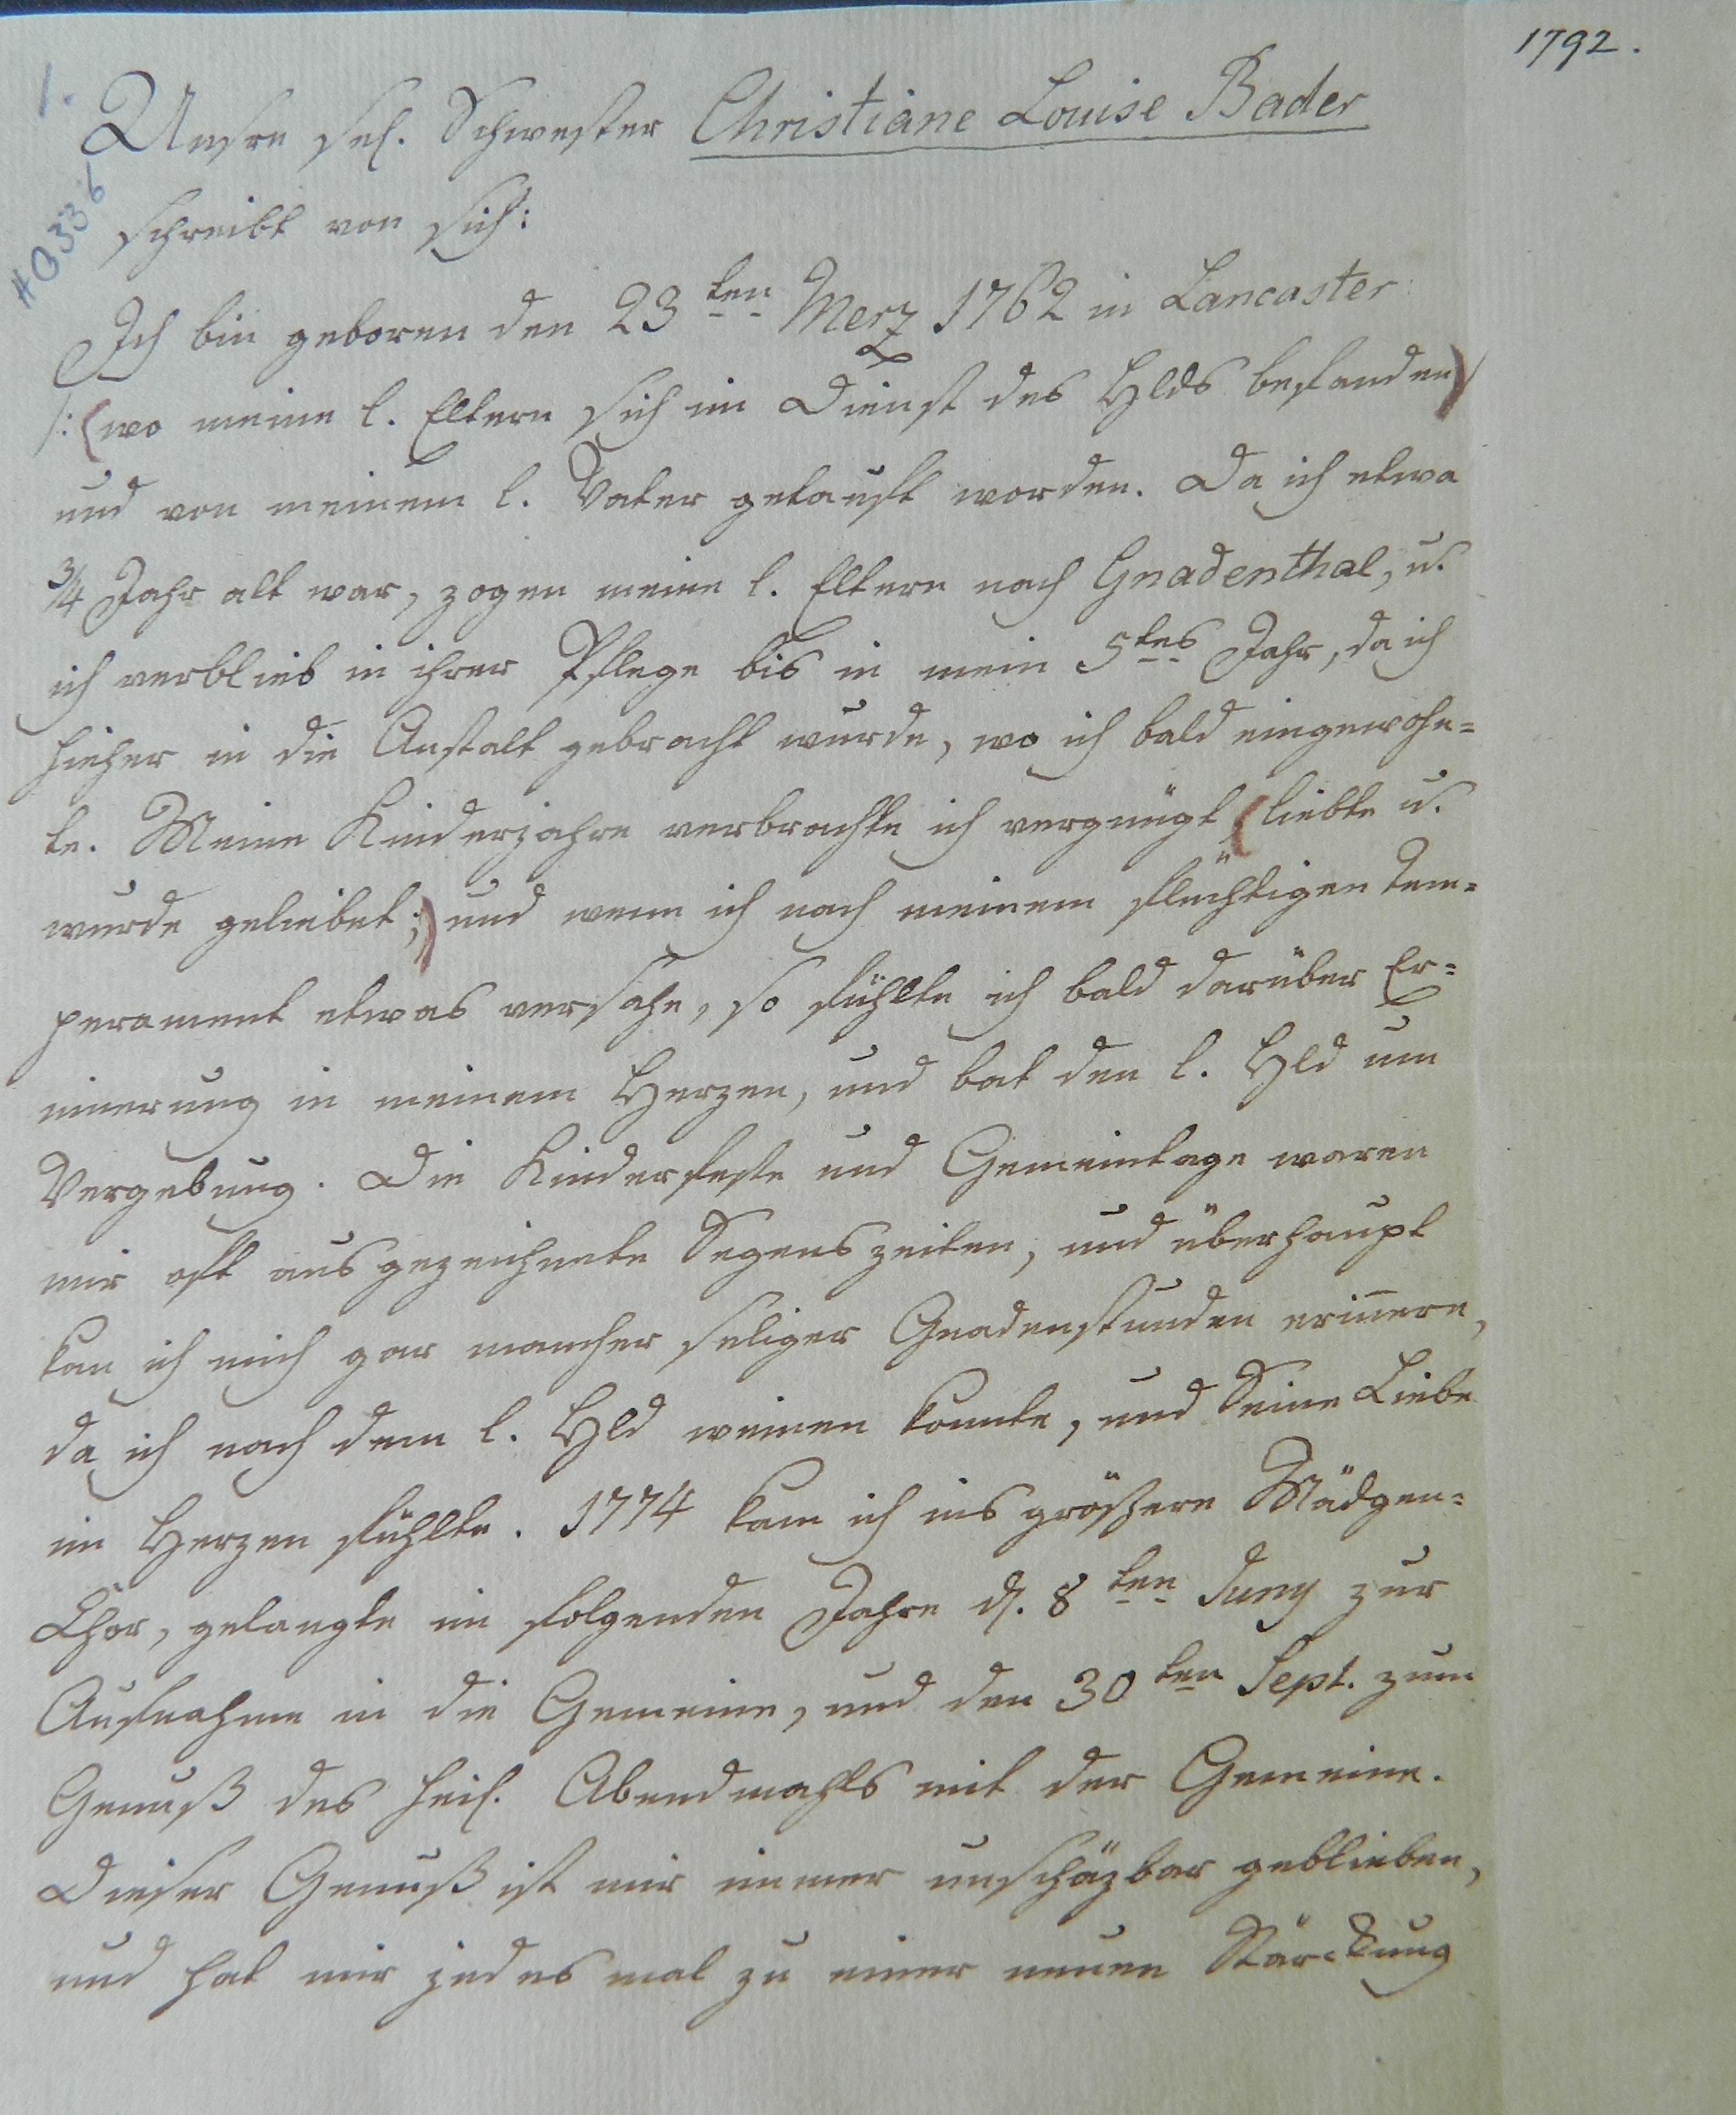 1792.
1.
#0336
Unsre sel. Schwester Christiane Louise Bader
schreibt von sich:
Ich bin geboren den 23ten Merz 1762 in Lancaster
/: (wo meine l. Eltern sich im Dienst des Hlds befanden)/
und von meinem l. Vater getauft worden. Da ich etwa
3/4 Jahr alt war, zogen meine l. Eltern nach Gnadenthal, u.
ich verblieb in ihrer Pflege bis in mein 5tes Jahr, da ich
hieher in die Anstalt gebracht wurde, wo ich bald eingewohn=
te. Meine Kinderjahre verbrachte ich vergnügt, (liebte u.
wurde geliebet;) und wenn ich nach meinem flüchtigen Tem=
perament etwas versahe, so fühlte ich bald darüber Er=
innerung in meinem Herzen, und bat den l. Hld um
Vergebung. Die Kinderfeste und Gemeintage waren
mir oft ausgezeichnete Segenszeiten, und überhaupt
kan ich mich gar mancher seliger Gnadenstunden erinnern,
da ich nach dem l. Hld weinen konnte, und Seine Liebe
im Herzen fühlte. 1774 kam ich ins größere Mädgen=
Chor, gelangte im folgenden Jahre d. 8ten Juny zur
Aufnahme in die Gemeine, und den 30ten Sept. zum
Genuß des heil. Abendmahls mit der Gemeine.
Dieser Genuß ist mir immer unschäzbar geblieben,
und hat mir jedesmal zu einer neuen Stärckung